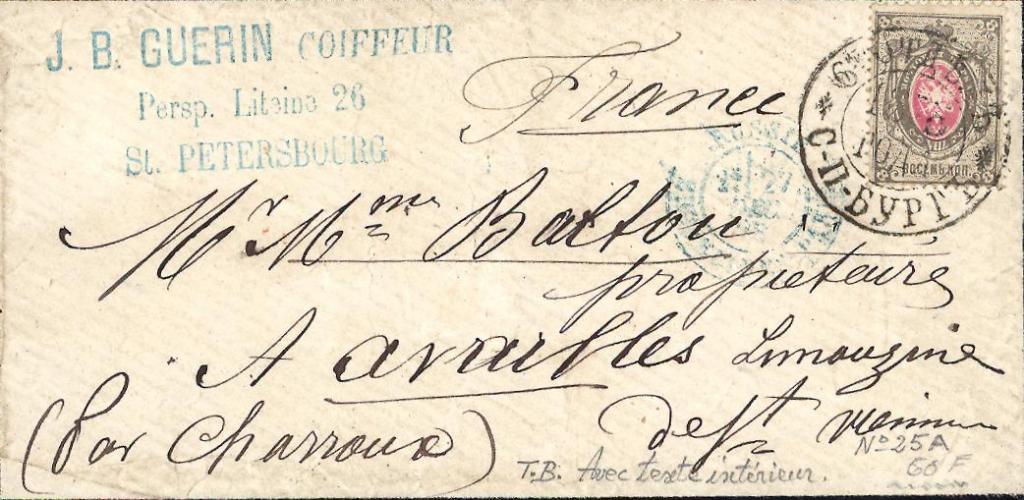 J. B. GUERIN COIFFEUR
Persp. Liteine 26
St. PETERSBOURG
France
ВОСЕМЬ КОП.
С-П-БУРГЪ
RUSSIE
Mr Mme Balton
propietaire
A availles Limouzine
(Par Charroux) de pt vienne
No 25A
60 F
T.B. Avec texte intérieur.